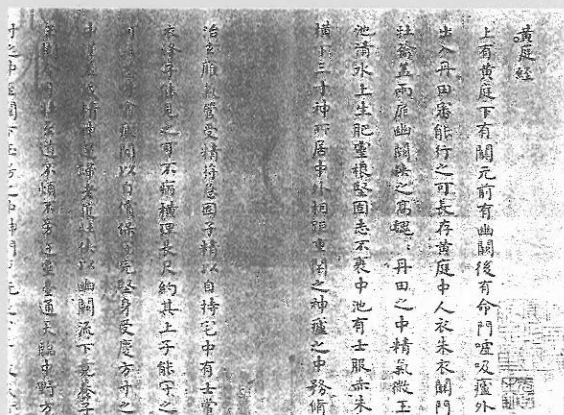 黃庭經
上有黃庭下有關元前有幽闕後有命門噓吸廬外
出入丹田審能行之可長存黃庭中人衣朱衣關門
壯籥蓋兩扉幽闕俠之高魏〻丹田之中精氣微玉
池清水上生肥靈根堅固志不衰中池有士服赤朱
橫下三寸神所居中外相距重閉之神廬之中務脩
治玄膺氣管受精符急固子精以自持宅中有士常
衣絳子能見之可不病橫理長尺約其上子能守之
可無恙呼噏廬間以自償保守完堅身受慶方寸之
中謹蓋藏精神還歸老復壯俠以幽闕流下竟養子
玉樹可壯至道不煩不旁迕靈臺通天臨中野方
寸之中至關下玉房之中神門戶